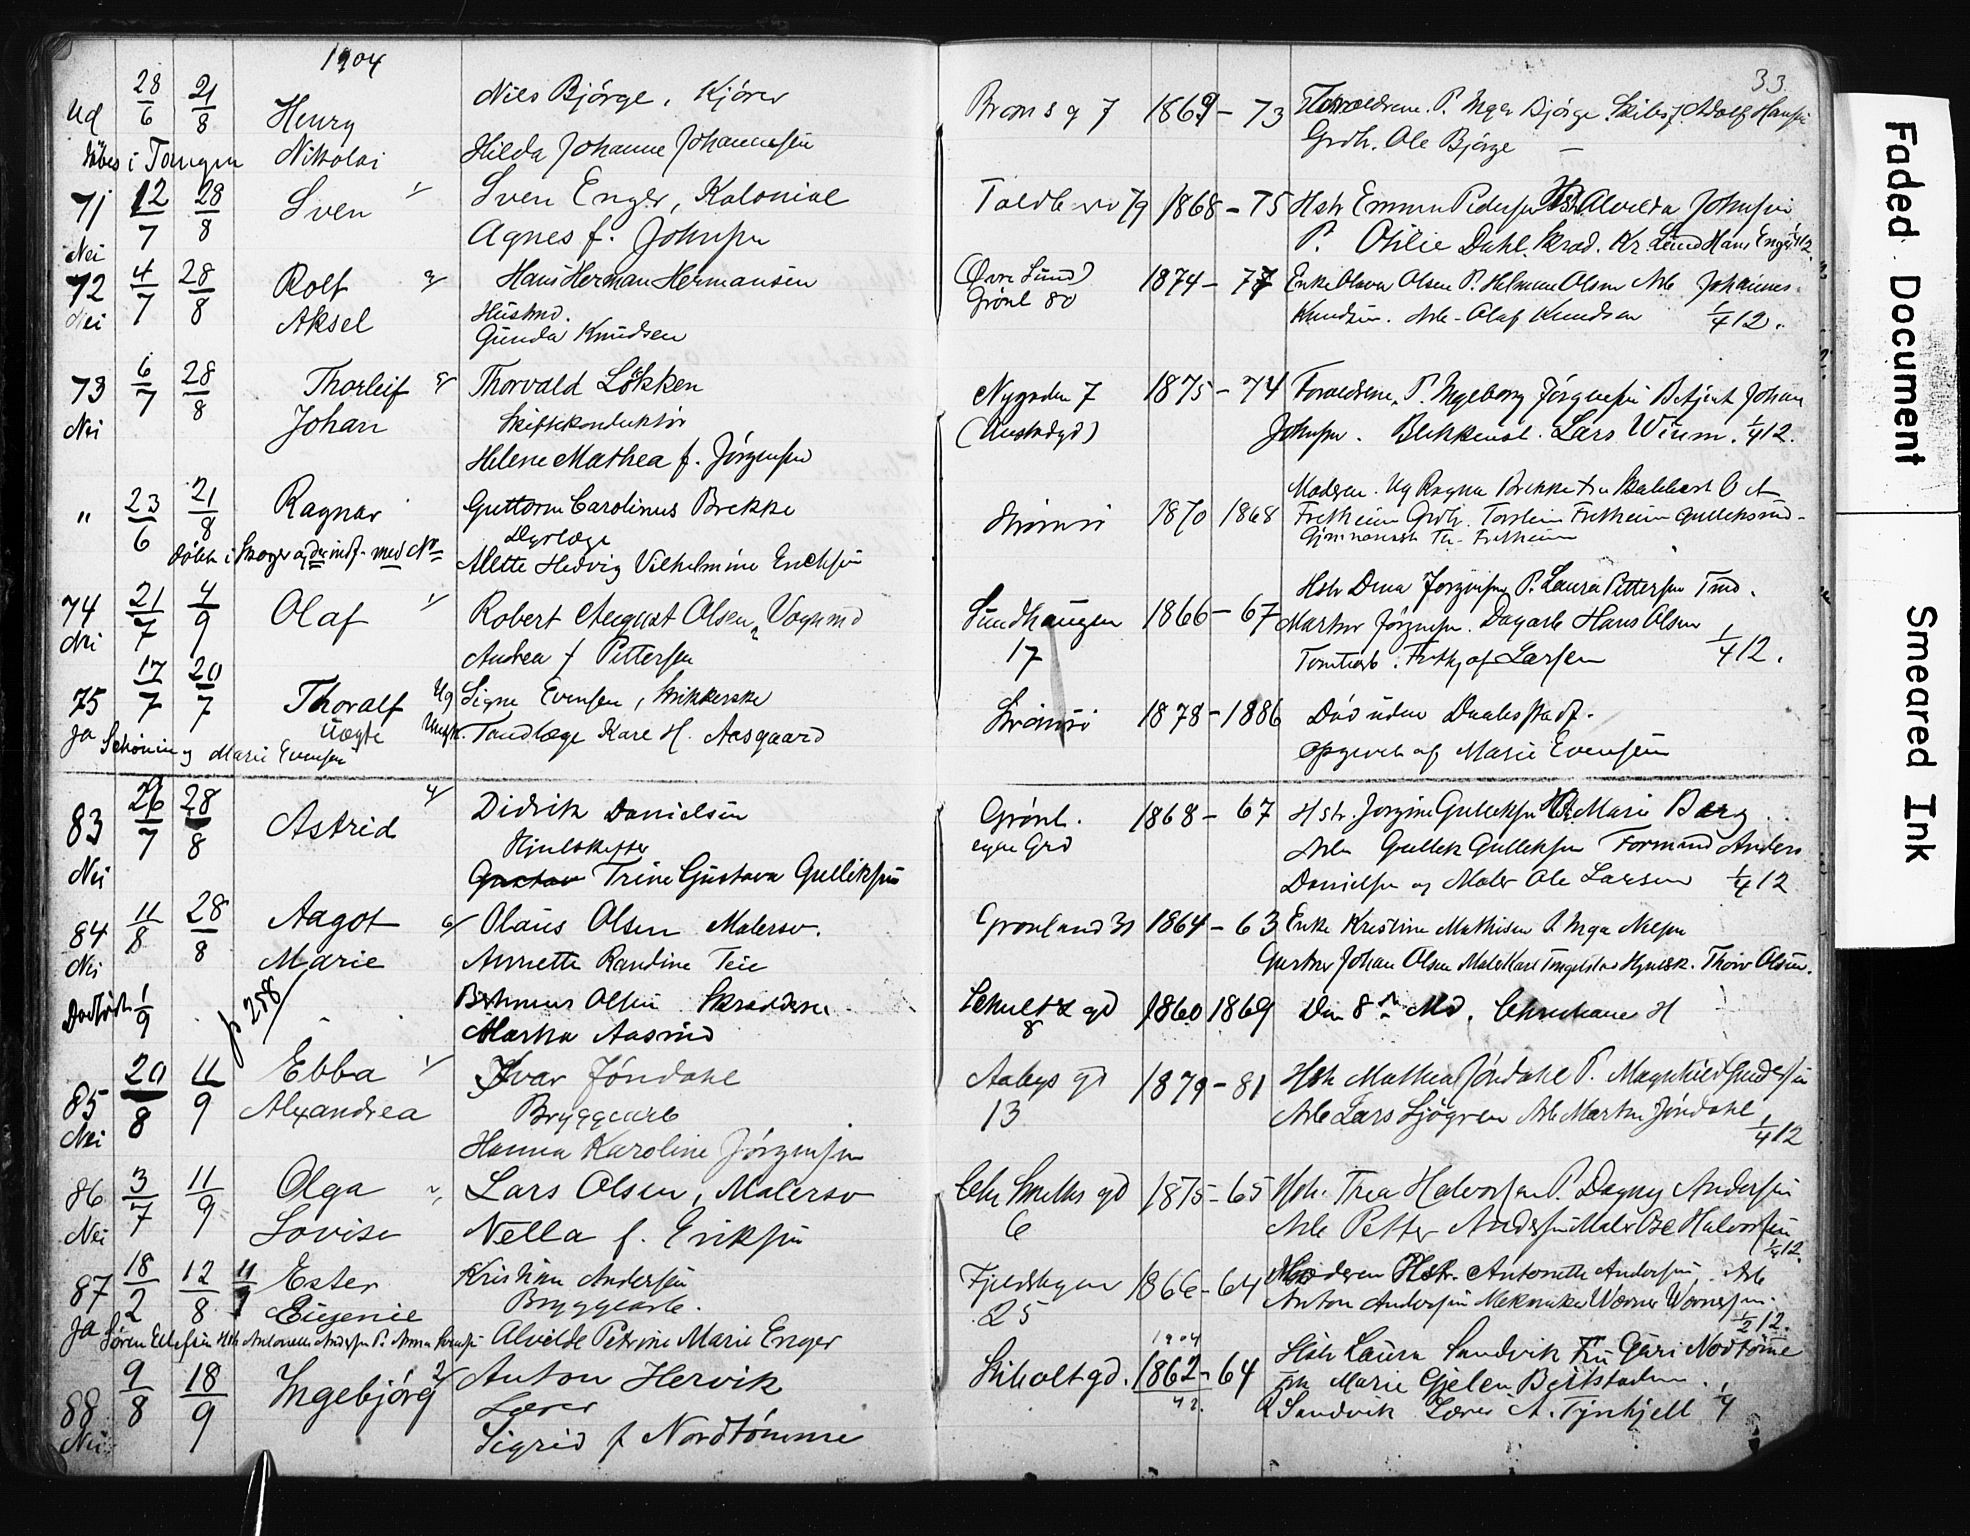 1904
33
Ud 28/6 21/8 Henry Nils Bjørge, Kjører 7 1869 - 73 Forældrene. P. Inga Bjørge. Adolf Hansen
døbes i Tangen Nikolai Hilda Johanne Johannesen Grdb. Ole Bjørge —
71 12/7 28/8 Sven Sven Enger, Kolonial 79 1868 - 75 Hstr Emma Pedersen Hstr Alvilda Johnsen
Nei Agnes f. Johnsen P. Otilie Dahl. Skræd. Kr. Lund Hans Enger 1/4 12.
72 4/7 28/8 Rolf Hans Herman Hermansen (Øvre Sund) 1874 - 77 Enke Olava Olsen P. Helmine Olsen Arb Johannes
Nei Aksel Husmd. Grønl 80 Knudsen. Arb - Olaf Knudsen 1/4 12.
Gunda Knudsen
73 6/7 28/8 Thorleif Thorvald Løkken Nygaden 7 1875 - 74 Forældrene, P. Ingeborg Jørgensen Betjent Johan
Nei Johan Skiftekonduktør Johnsen. Blikkensl. Lars Wium. 1/4 12.
Helene Mathea f. Jørgensen
" 23/6 21/8 Ragnar Guttorm Carolinus Brekke Strømsø 1870 1868 Moderen. Ug Ragna Brekke
Dyrlæge Fretheim Grdb. Torstein Fretheim
døbt i Skoger og der indf. med Nr Alette Hedvig Vilhelmine Erichsen Fretheim
74 21/7 4/9 Olaf Robert August Olsen, Vognmd Sundhaugen 1866 - 67 Hstr Dina Jørgensen P. Laura Pettersen Tmd.
Nei Andrea f Pettersen 17 Martin Jørgensen. Dagarb Hans Olsen
Tomtearb. Fritjof Larsen 1/4 12.
75 17/7 20/7 Thoralf Ug Signe Evensen, Strikkerske Strømsø 1878 - 1886 Død uden Daabsstadf.
Ja Uægte Ungk. Tandlæge Kare H. Aasgaard opgivet af Marie Evensen
Schøning Marie Evensen
83 26/7 28/8 Astrid Didrik Danielsen Grønl. 1868 - 67 Hstr. Jørgine Gulliksen Hstr Marie Berg
Nei Hjulskifter egen Grd Arb Gullik Gulliksen Formand Anders
Gustav Trine Gustava Gulliksen Danielsen og Maler Ole Larsen 1/4 12
84 11/8 28/8 Aagot Olaus Olsen Malersv. Grønland 31 1864 - 63 Enke Kristine Mathisen P. Inga Nilsen
Nei Marie Annette Randine Teie Gartner Johan Olsen Thorv Olsen.
Dødfødt 1/9 p 258 Olsen Schultz gd 1860 1869 Den 8de Md. H
Martha Aasrud 8
85 20/8 11/9 Ebba Ivar Jøndahl Aabys gd 1879 - 81 Hstr Mathea Jøndahl P. Magnhild
Nei Alexandrea Bryggearb 13 Arb Lars Sjøgren Arb Martin Jøndahl
Hanna Karoline Jørgensen 1/4 12
86 3/7 11/9 Olga Lars Olsen, Malersv Chr Smiths gd 1875 - 65 Hstr. Trea Halvorsen P. Dagny Andersen
Nei Lovise Nella f. Eriksen 6 Arb Petter Andersen Maler Halvorsen
1/4 12.
87 18/2 12/8 11/9 Ester Kristian Andersen Fjeldhagen 1866 - 64 Moderen Hstr. Antonette Andersen Arb
Eugenie Bryggearb. 25 Anton Andersen Mekniker Werner Wernersen.
Ja Søren Ellefsen Hstr Antonette Andersen P. Anna Alvilde Petrine Marie Enger 1/2 12.
88 9/8 18/9 Ingebjørg Anton Hervik Skiholt gd. 1904 1862 - 64 42 Hstr Laura Sandvik Fru Guri Nordtømme
Nei Lærer Frk Marie Gjelen
Sigrid f Nordtømme Sandvik Lærer A. Tynhjell 1/4
Faded Document
Smeared Ink